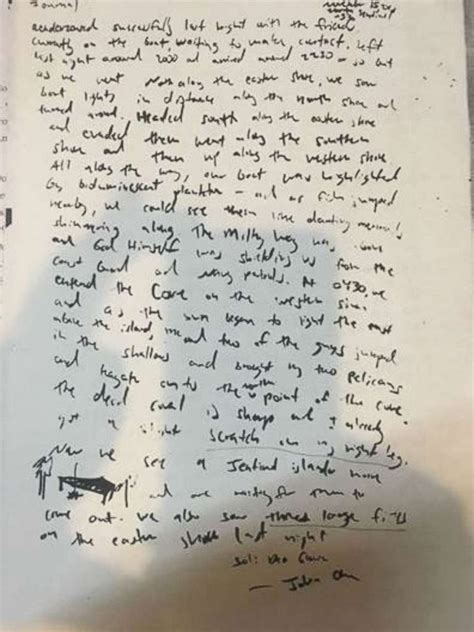 Journal
rendezvoused successfully last night with the friend
currently on the boat, waiting to make contact. Left
last night around 2000 and arrived around 2230 – but
as we went North along the eastern shore, we saw
boat lights in distance along the north shore and
turned around. Headed south along the eastern shore
and evaded them went along the southern
shore and then up along the western shore
All along the way, our boat was highlighted
by bioluminescent plankton – and as fish jumped
nearby, we could see them like darting mermaids
shimmering along. The Milky Way was above
and God Himself was shielding us from the
Coast Guard and navy patrols. At 0430, we
entered the Cove on the western side
and as the sun began to light the east
above the island, me and two of the guys jumped
in the shallows and brought my two pelicans
and kayak onto the north point of the cove.
The dead coral is sharp and I already
got a slight scratch on my right leg.
Now we see a Sentinel islander home
and are waiting for them to
come out. We also saw three large fires
on the eastern shore last night
Soli Deo Gloria
— John Chau